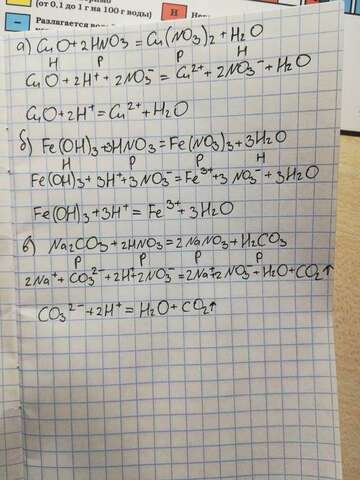 (от 0,1 до 1 г на 100 г воды)
Н
–
Разлагается
а) CuO+2HNO₃=Cu(NO₃)₂+H₂O
Н Р Р Н
CuO+2H⁺+2NO₃⁻=Cu²⁺+2NO₃⁻+H₂O
CuO+2H⁺=Cu²⁺+H₂O
б) Fe(OH)₃+3HNO₃=Fe(NO₃)₃+3H₂O
Н Р Р Н
Fe(OH)₃+3H⁺+3NO₃⁻=Fe³⁺+3NO₃⁻+3H₂O
Fe(OH)₃+3H⁺=Fe³⁺+3H₂O
в) Na₂CO₃+2HNO₃=2NaNO₃+H₂CO₃
Р Р Р Р
2Na⁺+CO₃²⁻+2H⁺+2NO₃⁻=2Na⁺+2NO₃⁻+H₂O+CO₂↑
CO₃²⁻+2H⁺=H₂O+CO₂↑